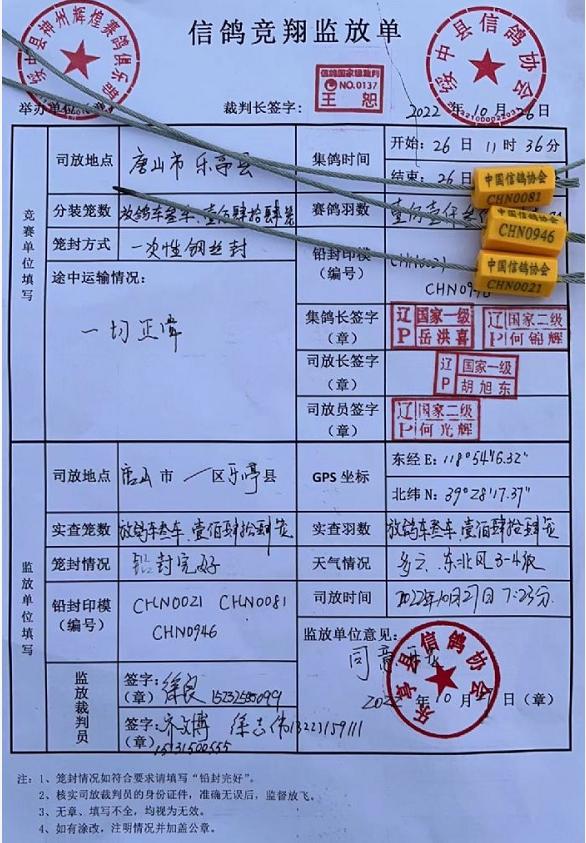 信鸽竞翔监放单
绥中县神州辉煌赛鸽俱乐部
绥中县信鸽协会
举办单位：（章）
裁判长签字：
信鸽国家级裁判
NO.0137
王恕
2022年10月26日
竞赛单位填写
司放地点 唐山市乐亭县 集鸽时间 开始：26日11时36分
结束：26日
分装笼数 放鸽车叁车、壹佰肆拾肆笼 赛鸽羽数
笼封方式 一次性钢丝封 铅封印模（编号） CHN0021
CHN0946
中国信鸽协会
CHN0081
中国信鸽协会
CHN0946
中国信鸽协会
CHN0021
途中运输情况：
一切正常
集鸽长签字（章） 辽P 国家一级 岳洪喜 辽P 国家二级 何锦辉
司放长签字（章） 辽P 国家一级 胡旭东
司放员签字（章） 辽P 国家二级 何光辉
监放单位填写
司放地点 唐山市 区乐亭县 GPS 坐标 东经 E：118°54'46.32"
北纬 N：39°28'17.37"
实查笼数 放鸽车叁车、壹佰肆拾肆笼 实查羽数 放鸽车叁车、壹佰肆拾肆笼
笼封情况 铅封完好 天气情况 多云、东北风3-4级
铅封印模（编号） CHN0021 CHN0081 司放时间 2022年10月27日7:23分
CHN0946
监放单位意见：
同意
乐亭县信鸽协会
2022年10月27日（章）
监放裁判员
签字：（章） 徐良
签字：（章） 齐文博 徐志伟 13223159111
15131500555
注：1、笼封情况如符合要求请填写“铅封完好”。
2、核实司放裁判员的身份证件，准确无误后，监督放飞。
3、无章、填写不全，均视为无效。
4、如有涂改，注明情况并加盖公章。